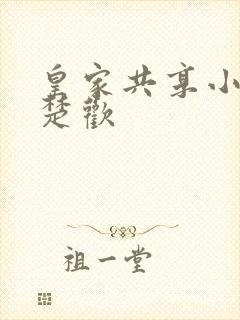 皇家共享小
楚歡
祖一堂